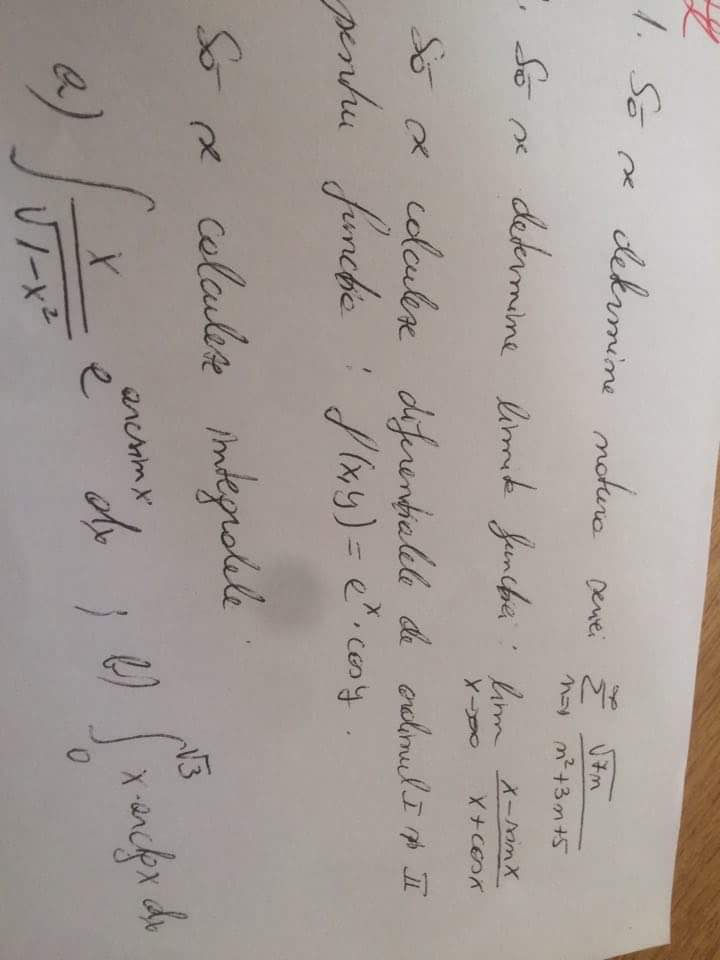 1. Să se determine natura seriei ∑_{n=1}^{∞} √(7n) / (n²+3n+5)
. Să se determine limita funcției : lim_{x→∞} (x-sinx) / (x+cosx)
Să se calculeze diferențialele de ordinul I și II
pentru funcția : f(x,y) = e^x · cosy .
Să se calculeze integralele
a) ∫ x/√(1-x²) e^{arcsinx} dx ; b) ∫_0^{√3} x·arctgx dx